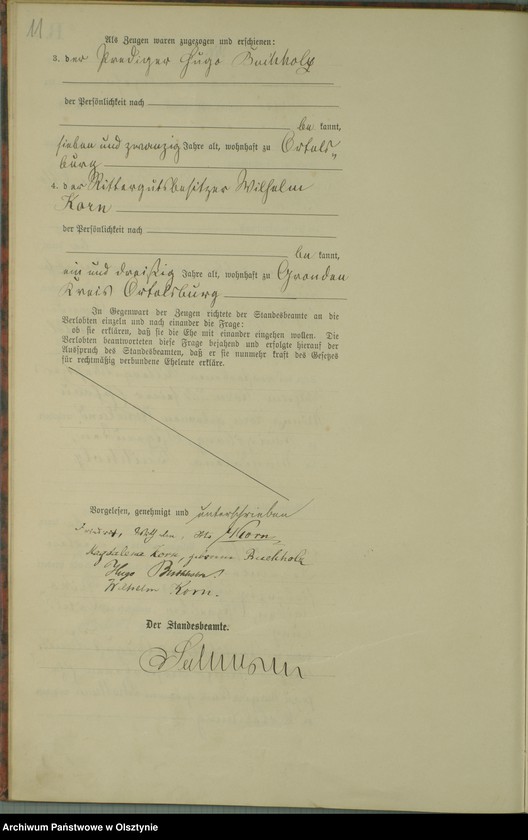 11
Als Zeugen waren zugezogen und erschienen:
3. der Prediger Hugo Buchholz
der Persönlichkeit nach
bekannt,
sieben und zwanzig Jahre alt, wohnhaft zu Ortels„
burg
4. der Rittergutsbesitzer Wilhelm
Korn
der Persönlichkeit nach
bekannt,
ein und dreißig Jahre alt, wohnhaft zu Gronden
Kreis Ortelsburg
In Gegenwart der Zeugen richtete der Standesbeamte an die
Verlobten einzeln und nach einander die Frage:
ob sie erklären, daß sie die Ehe mit einander eingehen wollen. Die
Verlobten beantworteten diese Frage bejahend und erfolgte hierauf der
Ausspruch des Standesbeamten, daß er sie nunmehr kraft des Gesetzes
für rechtmäßig verbundene Eheleute erkläre.
Vorgelesen, genehmigt und unterschrieben
Otto Korn
Magdalena Korn, geborene Buchholz
Hugo Buchholz.
Wilhelm Korn.
Der Standesbeamte.
Archiwum Państwowe w Olsztynie